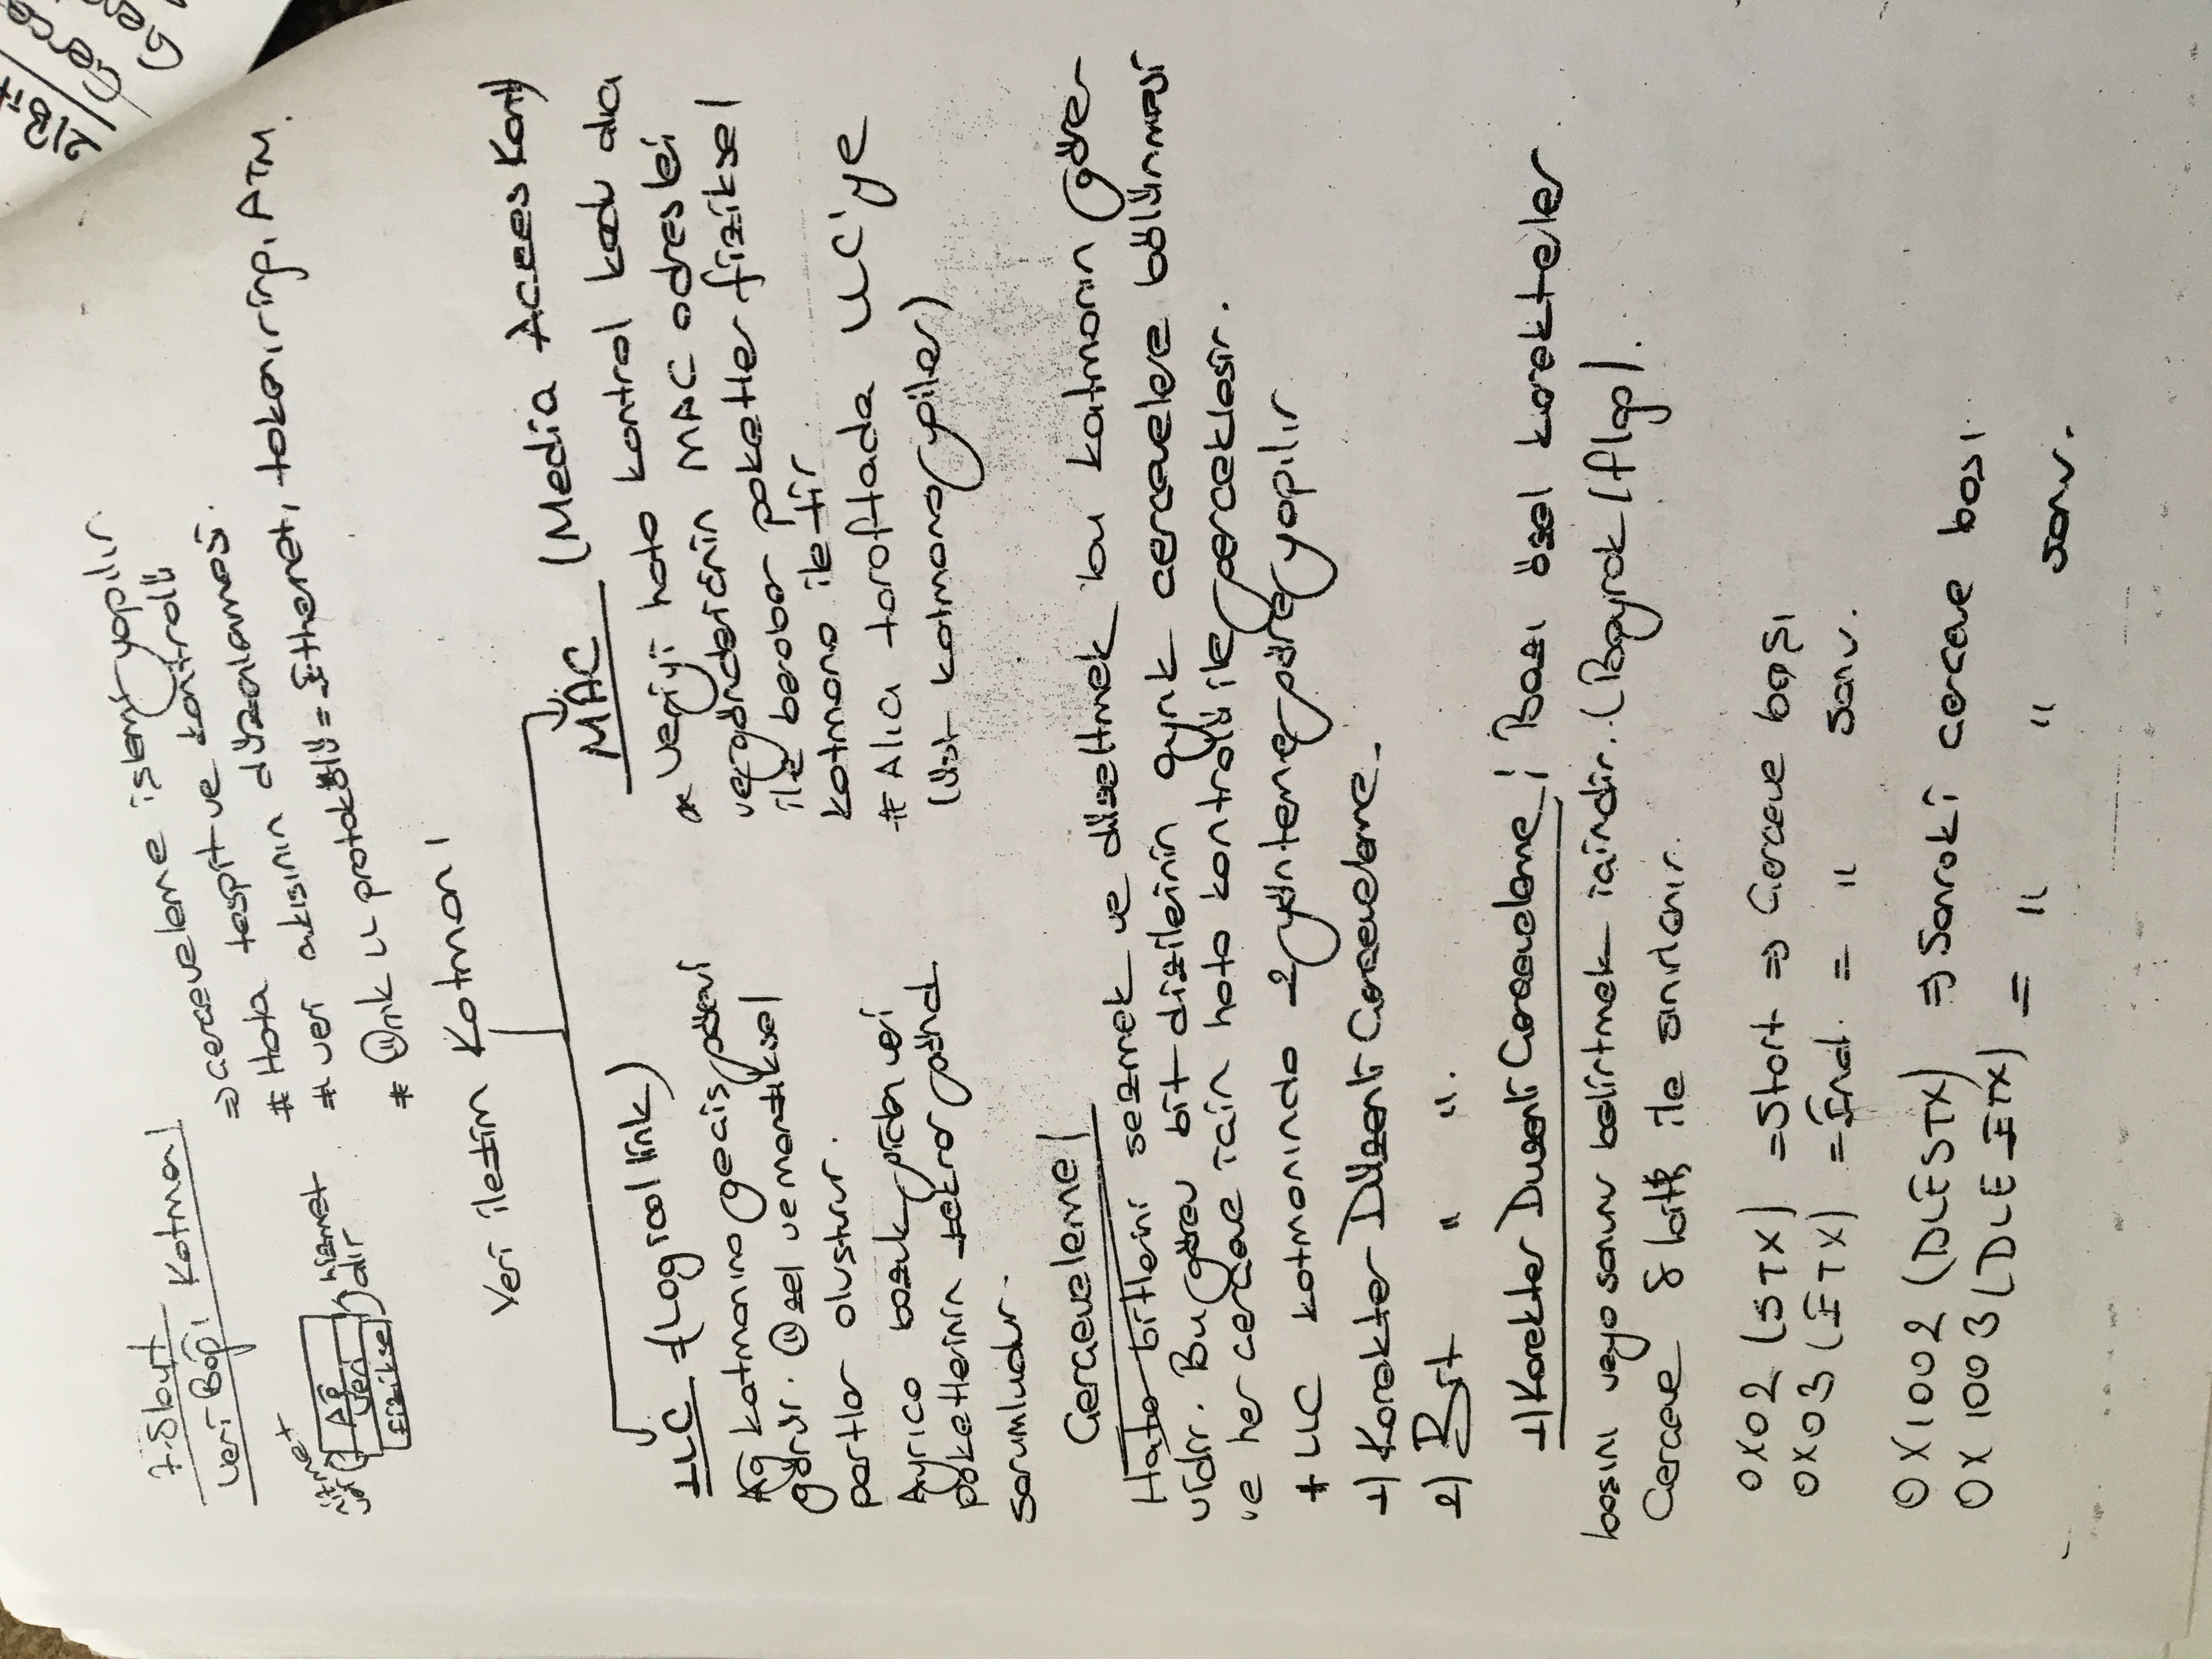 7. Slayt
Veri Bağı Katmanı
=> Çerçeveleme işlemi yapılır
# Hata tespit ve kontrolü
# veri akışının düzenlemesi.
# Örnk LL protokölü = Ethernet, token, ring, ATM
hizmet
ver
Ağ
Veri
fiziksel
hizmet
alır
Veri iletim Katmanı
LLC = (Logical link)
Ağ katmanına geçiş görevi
görür. Özel ve mantıksal
portlar oluşturur.
Ayrıca bozuk giden veri
paketlerinin tekrar gönd.
sorumludur.
MAC (Media Acces Kont)
* Veriyi hata kontrol kodu alıcı
ve göndericinin MAC adresleri
ile beraber paketler fiziksel
katmana iletir
# Alıcı taraftada LLC'ye
(üst katmana yiler)
Çerçeveleme /
Hata bitlerini sezmek ve düzeltmek bu katmanın göre-
vidir. Bu görev bit dizilerinin ayrık çerçevelere bölünmesi
ve her çerçeve için hata kontrolü ile gerçekleşir.
* LLC katmanında 2 yönteme göre yapılır
1) Karakter Düzenli Çerçeveleme.
2) Bit " ".
1) Karakter Duzenli Çerçeveleme ; Bazı özel karekteler
başını veya sonunu belirtmek içindir. (Bayrak / flag).
Çerçeve 8 bit ile sınırlanır.
0X02 (STX) = Start => Çerçeve başı
0X03 (ETX) = End. = " sonu.
0X1002 (DLESTX) => Sonraki çerçeve başı
0X1003 (DLE ETX) = " " sonu.
2) Bit
Çerçe